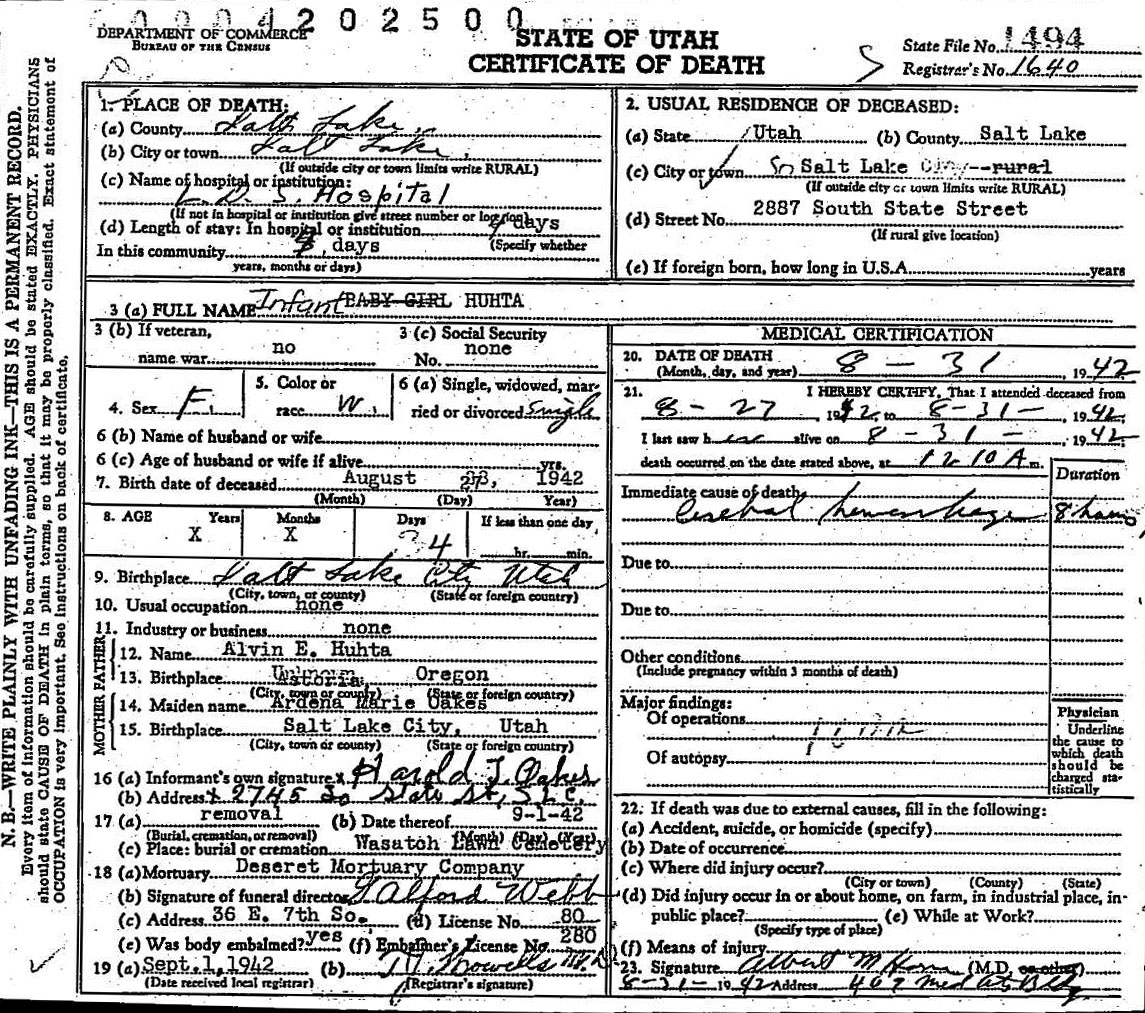 0 0 0 4 2 0 2 5 0 0
DEPARTMENT OF COMMERCE
BUREAU OF THE CENSUS
STATE OF UTAH
CERTIFICATE OF DEATH
State File No. 1494
Registrar's No. 1640
N. B.—WRITE PLAINLY WITH UNFADING INK—THIS IS A PERMANENT RECORD.
Every item of information should be carefully supplied. AGE should be stated EXACTLY. PHYSICIANS
should state CAUSE OF DEATH in plain terms, so that it may be properly classified. Exact statement of
OCCUPATION is very important. See instructions on back of certificate.
1. PLACE OF DEATH:
(a) County Salt Lake
(b) City or town Salt Lake
(If outside city or town limits write RURAL)
(c) Name of hospital or institution:
L. D. S. Hospital
(If not in hospital or institution give street number or location)
(d) Length of stay: In hospital or institution days
(Specify whether
In this community days
years, months or days)
2. USUAL RESIDENCE OF DECEASED:
(a) State Utah (b) County Salt Lake
(c) City or town So Salt Lake City--rural
(If outside city or town limits write RURAL)
(d) Street No. 2887 South State Street
(If rural give location)
(e) If foreign born, how long in U.S.A. years
3 (a) FULL NAME Infant BABY GIRL HUHTA
3 (b) If veteran,
name war no
3 (c) Social Security
No. none
4. Sex F.
5. Color or
race W.
6 (a) Single, widowed, mar-
ried or divorced Single
6 (b) Name of husband or wife
6 (c) Age of husband or wife if alive yrs.
7. Birth date of deceased August 27, 1942
(Month) (Day) Year)
8. AGE Years Months Days If less than one day
X X 4 hr. min.
9. Birthplace Salt Lake City Utah
(City, town, or county) (State or foreign country)
10. Usual occupation none
11. Industry or business none
FATHER
12. Name Alvin E. Huhta
13. Birthplace Astoria, Oregon
(City, town or county) (State or foreign country)
MOTHER
14. Maiden name Ardena Marie Oakes
15. Birthplace Salt Lake City, Utah
(City, town or county) (State or foreign country)
16 (a) Informant's own signature x Harold J. Oakes
(b) Address x 2745 So State St, S.L.C.
17 (a) removal (b) Date thereof 9-1-42
(Burial, cremation, or removal) (Month) (Day) (Year)
(c) Place: burial or cremation Wasatch Lawn Cemetery
18 (a) Mortuary Deseret Mortuary Company
(b) Signature of funeral director Alford Webb
(c) Address 36 E. 7th So. (d) License No. 80
(e) Was body embalmed? yes (f) Embalmer's License No. 280
19 (a) Sept. 1, 1942 (b)
(Date received local registrar) (Registrar's signature)
MEDICAL CERTIFICATION
20. DATE OF DEATH
(Month, day, and year) 8 - 31 1942
21. I HEREBY CERTIFY, That I attended deceased from
8 - 27, 1942 to 8-31-, 1942,
I last saw her alive on 8 - 31 -, 1942,
death occurred on the date stated above, at 12 10 A m.
Duration
Immediate cause of death
Cerebral hemorrhage 8 hours
Due to
Due to
Other conditions
(Include pregnancy within 3 months of death)
Major findings:
Of operations
Of autopsy
Physician
Underline
the cause to
which death
should be
charged sta-
tistically
22. If death was due to external causes, fill in the following:
(a) Accident, suicide, or homicide (specify)
(b) Date of occurrence
(c) Where did injury occur?
(City or town) (County) (State)
(d) Did injury occur in or about home, on farm, in industrial place, in-
public place? (e) While at Work?
(Specify type of place)
(f) Means of injury
23. Signature Albert M (M.D. or other)
8-31-1942 Address Med Arts Bldg.